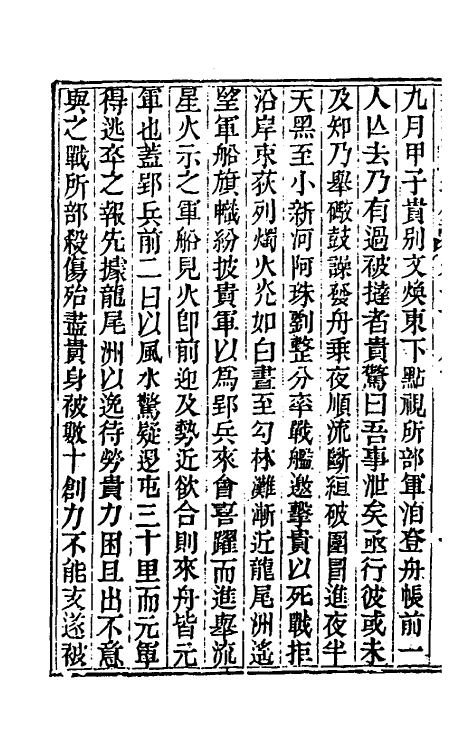 九月甲子貴別文煥東下點視所部軍洎登舟帳前一
人亾去乃有過被撻者貴驚曰吾事泄矣亟行彼或未
及知乃舉礮鼓譟發舟乘夜順流斷絙破圍冒進夜半
天黑至小新河阿珠劉整分率戰艦邀擊貴以死戰拒
沿岸束荻列燭火光如白晝至勾林灘漸近龍尾洲遙
望軍船旗幟紛披貴軍以爲郢兵來會喜躍而進舉流
星火示之軍船見火卽前迎及勢近欲合則來舟皆元
軍也蓋郢兵前二日以風水驚疑退屯三十里而元軍
得逃卒之報先據龍尾洲以逸待勞貴力困且出不意
與之戰所部殺傷殆盡貴身被數十創力不能支遂被